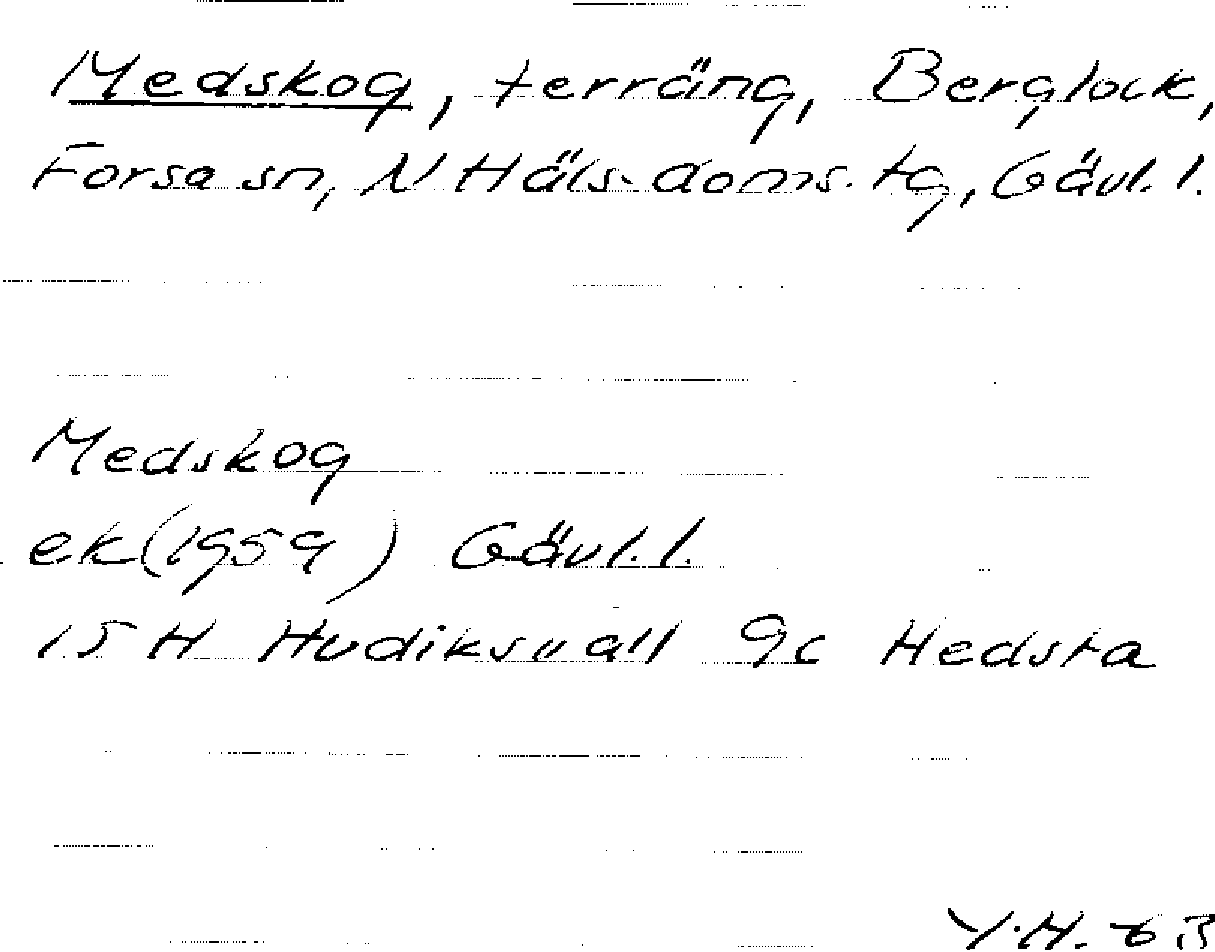 Medskog, terräng, Berglock,
Forsa sn, N Häls. doms. tg, Gävl. l.
Medskog
ek (1959) Gävl. l.
15 H Hudiksvall 9c Hedsta
Y.H. 63